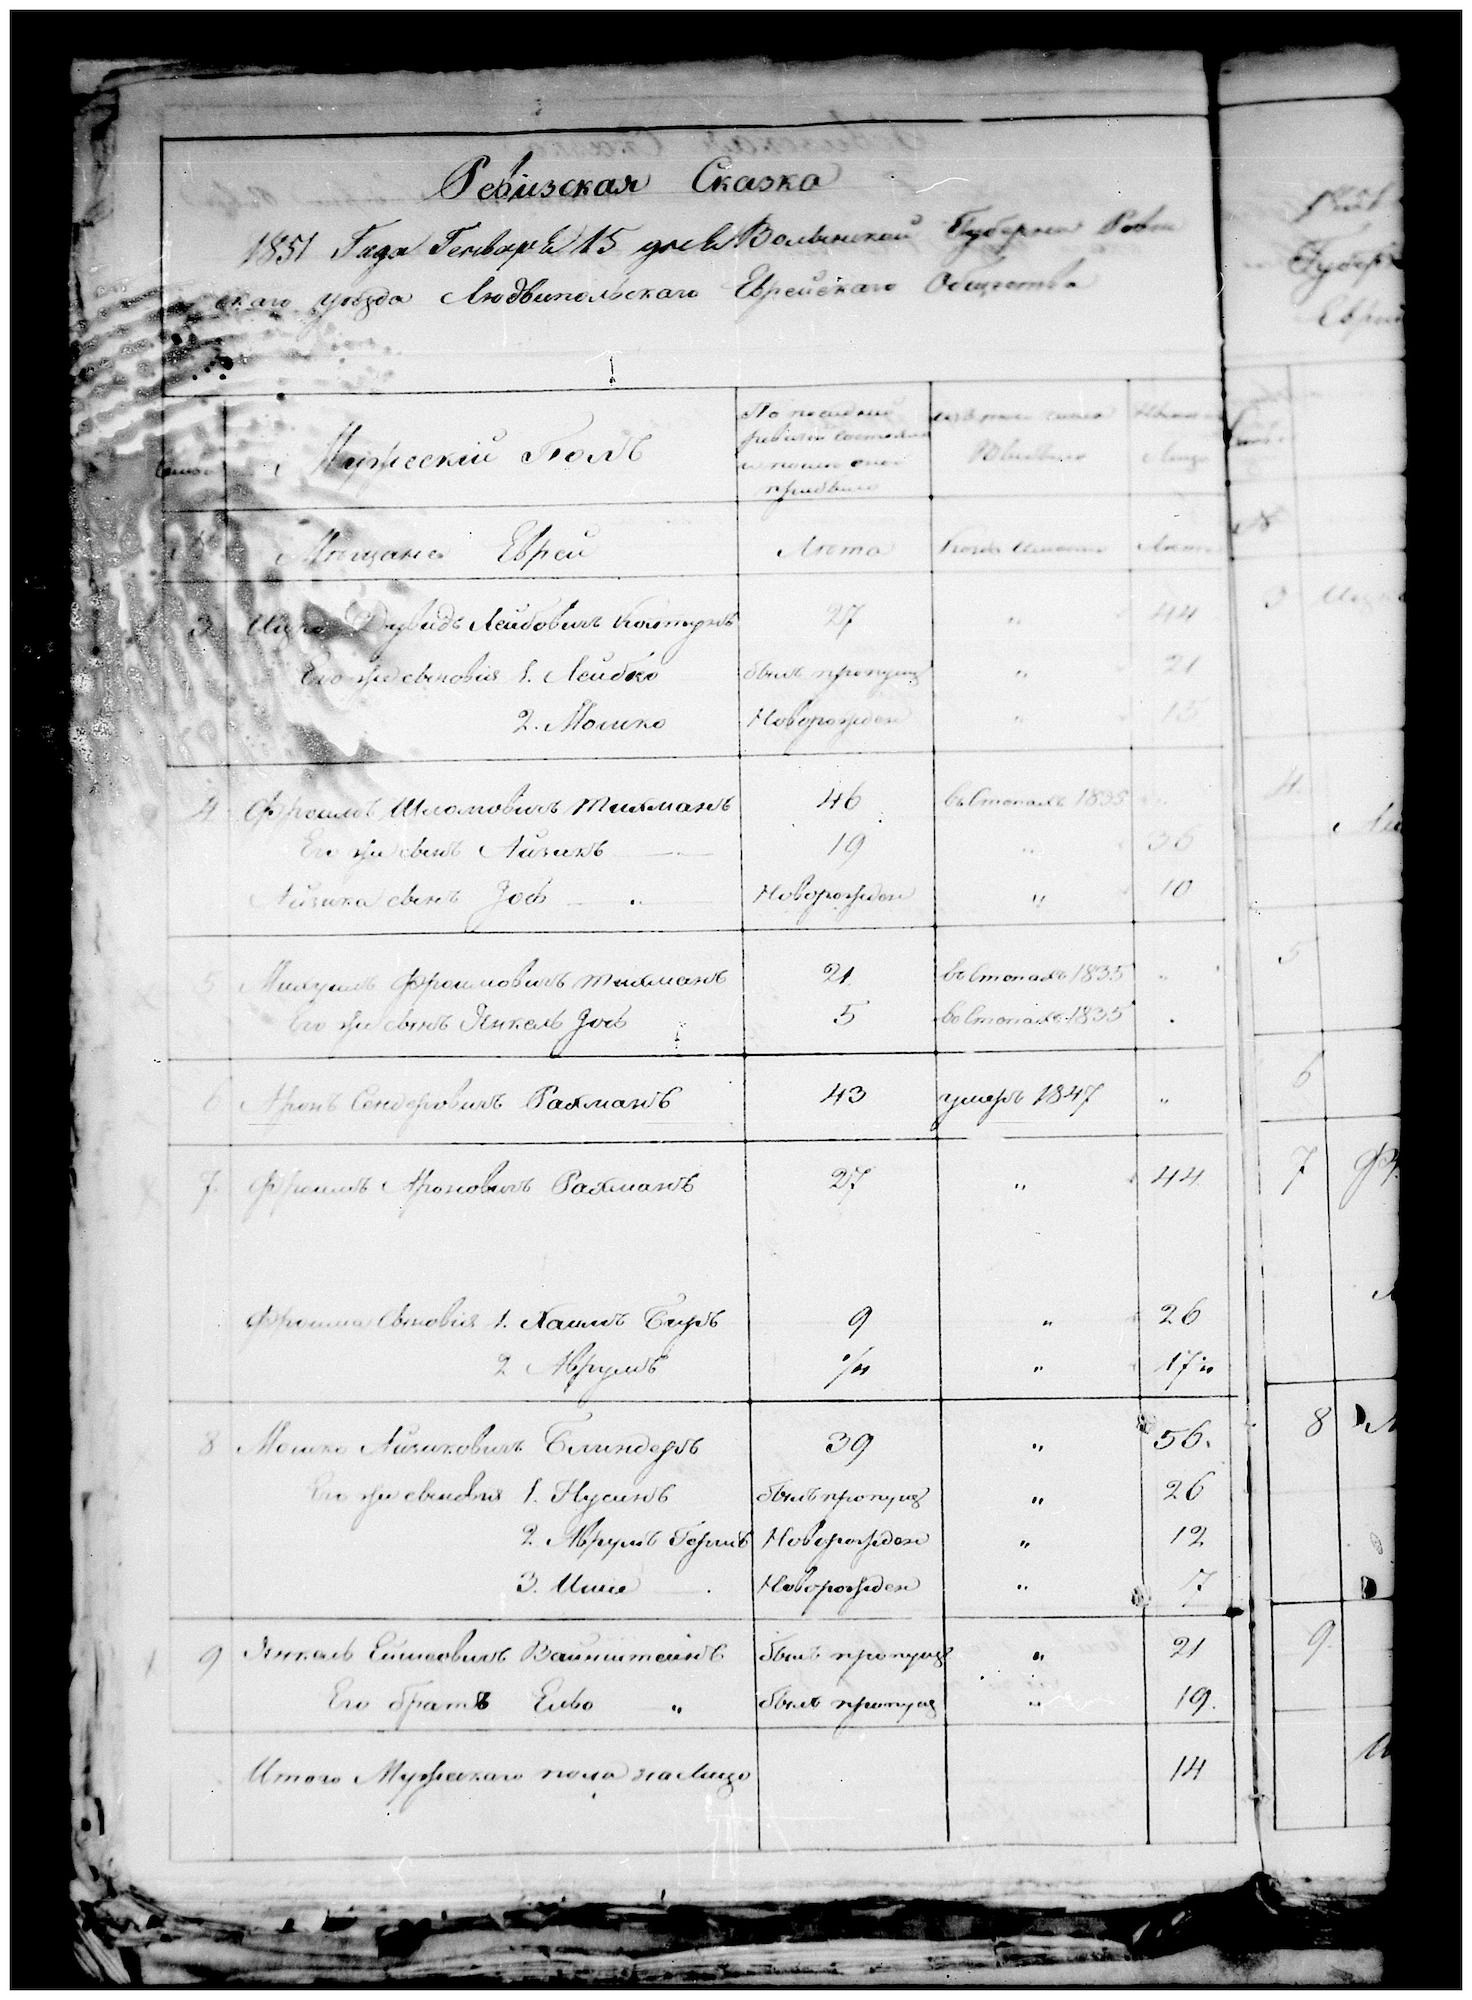 Ревизская Сказка
1851 Года Генваря 15 дня Волынской Губернии Ровен
скаго уезда Людвипольскаго Еврейскаго Общества
Мужескій Полъ
По последней
ревизіи состояло
и после оной
прибыло
Изъ того числа
выбыло
Ныне на
Лицо
Мещане Евреи
Лета
Когда именно
Лета
3 Ицко Дувидъ Лейбовичъ Ковтунъ 27 " 44
Его же сыновья 1. Лейбко былъ пропущ " 21
2. Мошко Новорожден " 15
4 Фроимъ Шломовичъ Тихманъ 46 въ 1835
Его же сынъ Айзикъ 19 " 36
Айзика сынъ Іось Новорожден " 10
5 Фроимовичъ Тихманъ 21 въ 1835 "
Его же сынъ Янкель Іось 5 въ 1835 .
6 Аронъ Сендеровичъ Рахманъ 43 умеръ 1847 "
7 Фроимъ Ароновичъ Рахманъ 27 " 44
Фроима сыновья 1. Хаимъ Беръ 9 " 26
2 Аврумъ " 17
8 Мошко Айзиковичъ Блиндеръ 39 " 56.
Его же сыновья 1. Нусинъ былъ пропущ " 26
2. Аврумъ Гершъ Новорожден " 12
3. Новорожден " 7
9 Янкель Вайнштейнъ былъ пропущ " 21
Его братъ " былъ пропущ " 19.
Итого Мужескаго пола на Лицо 14
Губер
Еврей
3
4
5
6
7
8
9